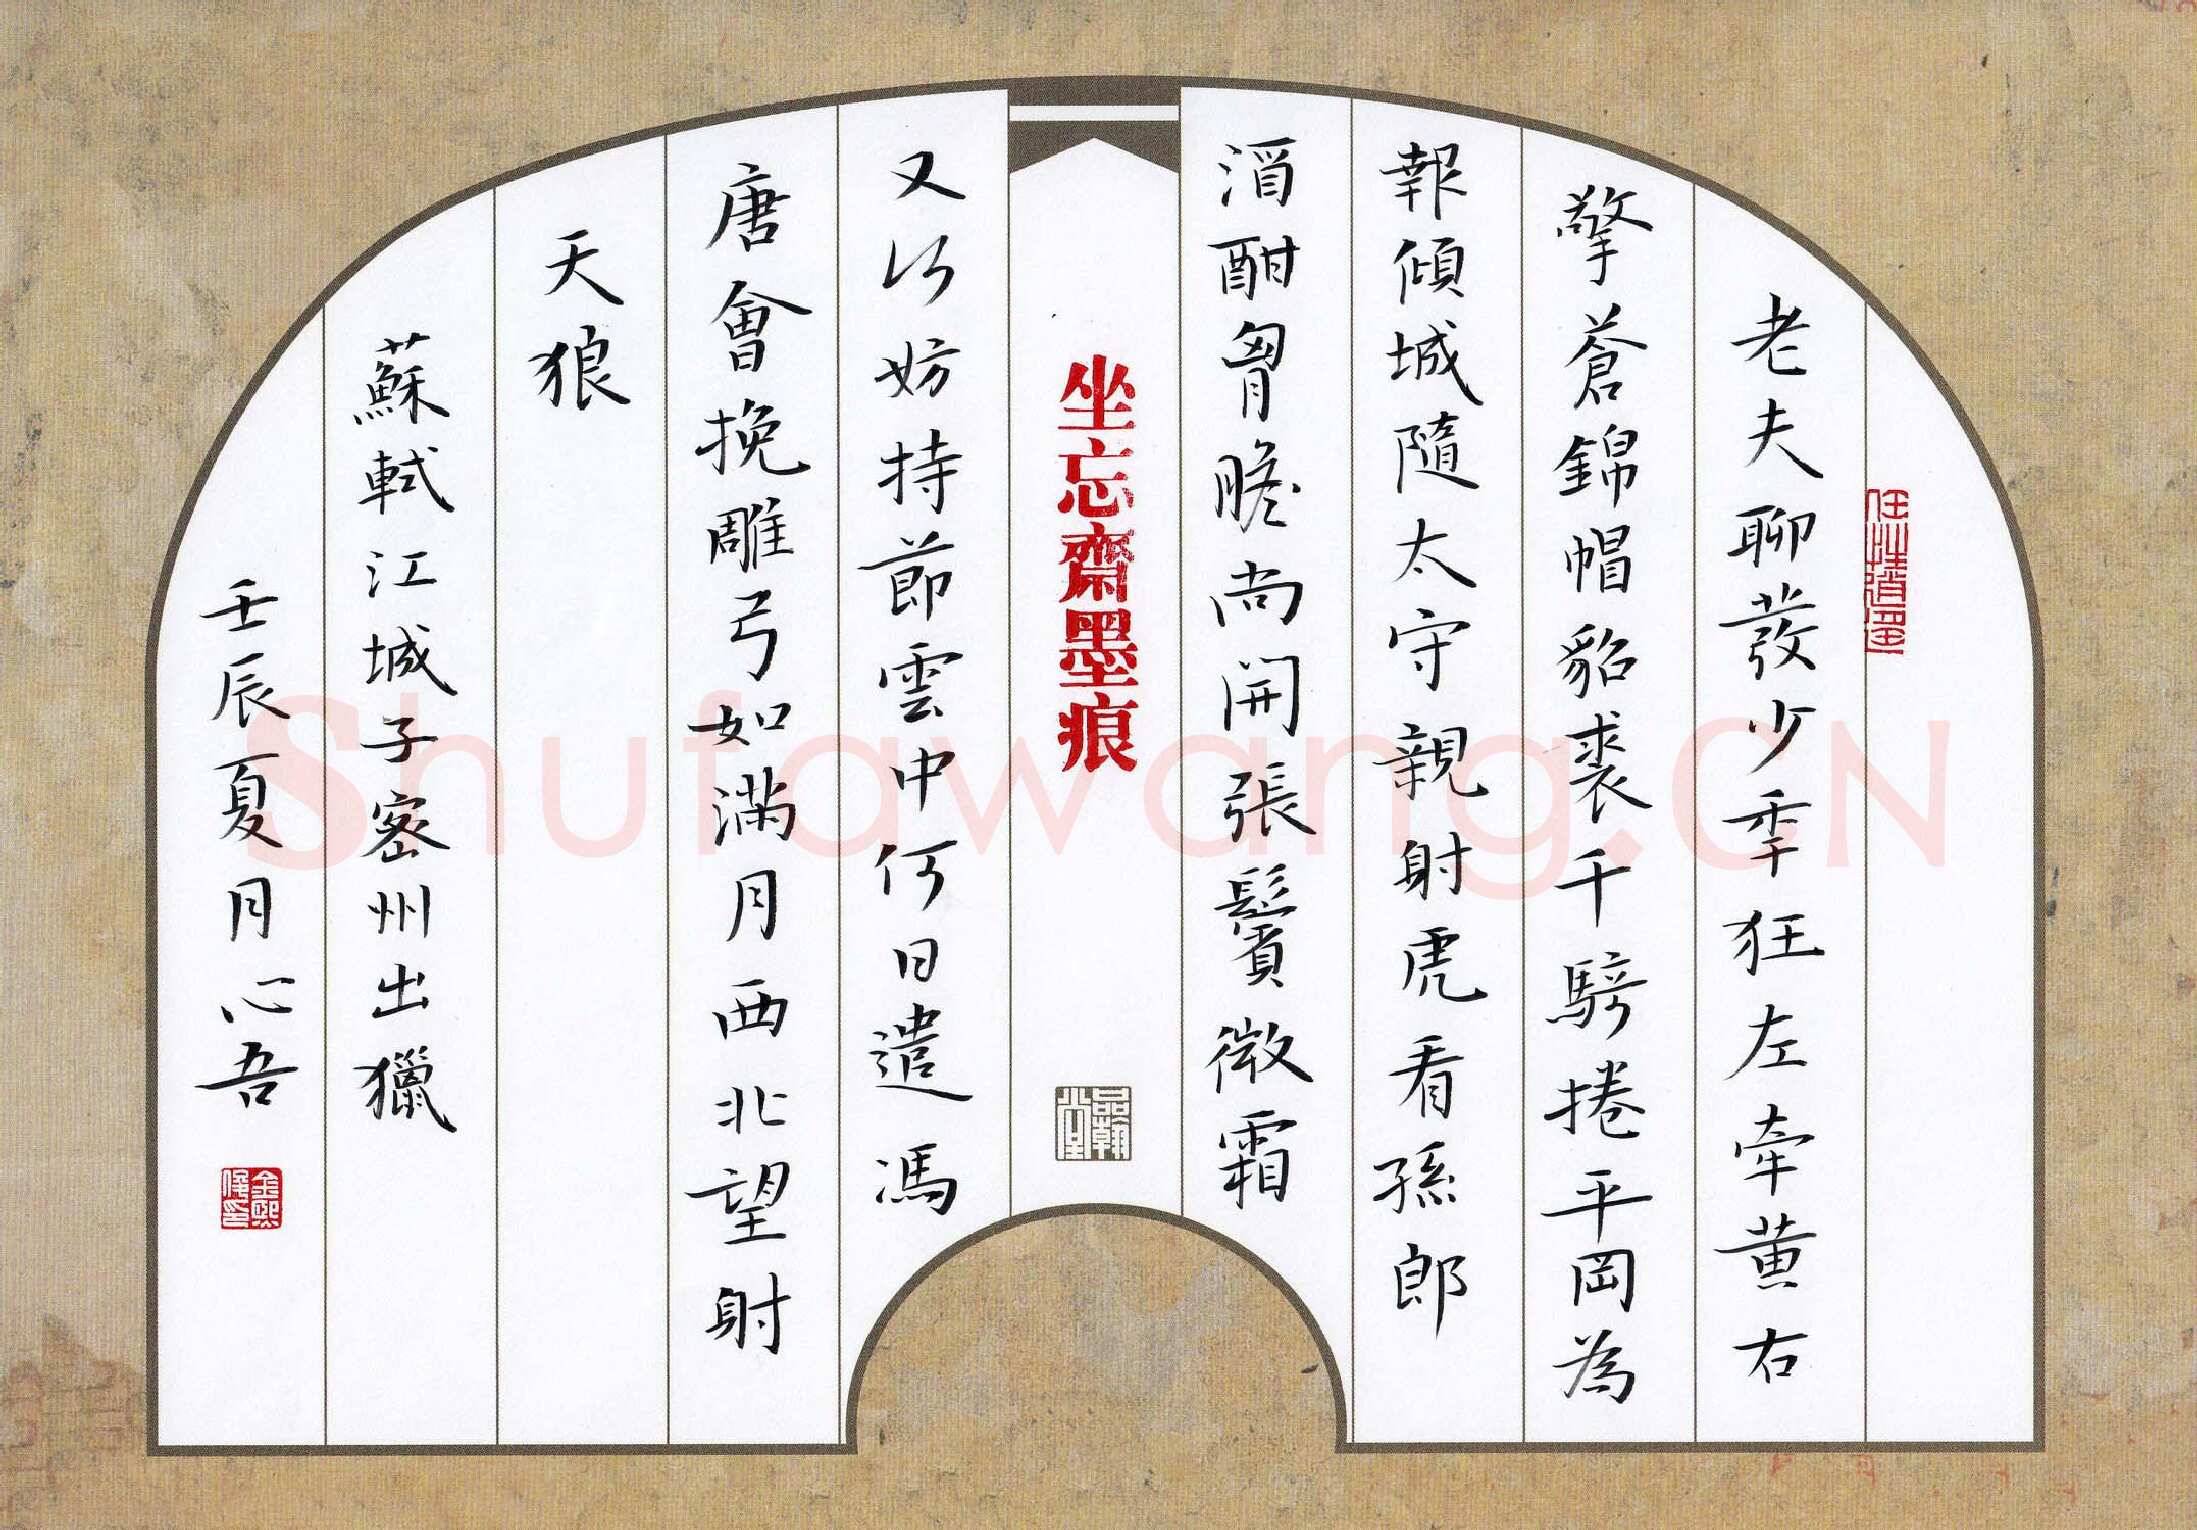 老夫聊發少秊狂左牽黃右
擎蒼錦帽貂裘千騎捲平岡為
報傾城隨太守親射虎看孫郎
酒酣胷膽尚開張鬢微霜
坐忘齋墨痕
品翰堂
又何妨持節雲中何日遣馮
唐會挽雕弓如滿月西北望射
天狼
蘇軾江城子密州出獵
壬辰夏月心吾
Shufawang.CN